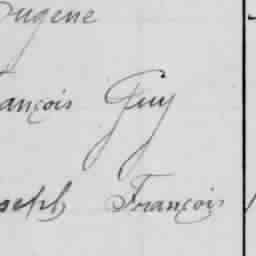 Eugene
François Guy
Joseph François